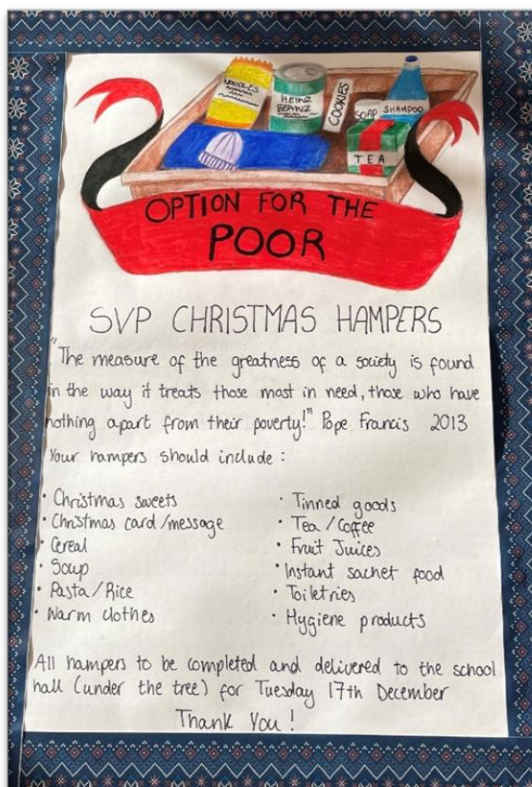 NOODLES
HEINZ
BEANZ
COOKIES
SOAP
SHAMPOO
TEA
OPTION FOR THE
POOR
SVP CHRISTMAS HAMPERS
"The measure of the greatness of a society is found
in the way it treats those most in need, those who have
nothing apart from their poverty!" Pope Francis 2013
Your hampers should include :
• Christmas sweets
• Christmas card/message
• Cereal
• Soup
• Pasta/Rice
• Warm clothes
• Tinned goods
• Tea/Coffee
• Fruit Juices
• Instant sachet food
• Toiletries
• Hygiene products
All hampers to be completed and delivered to the school
hall (under the tree) for Tuesday 17th December
Thank You!